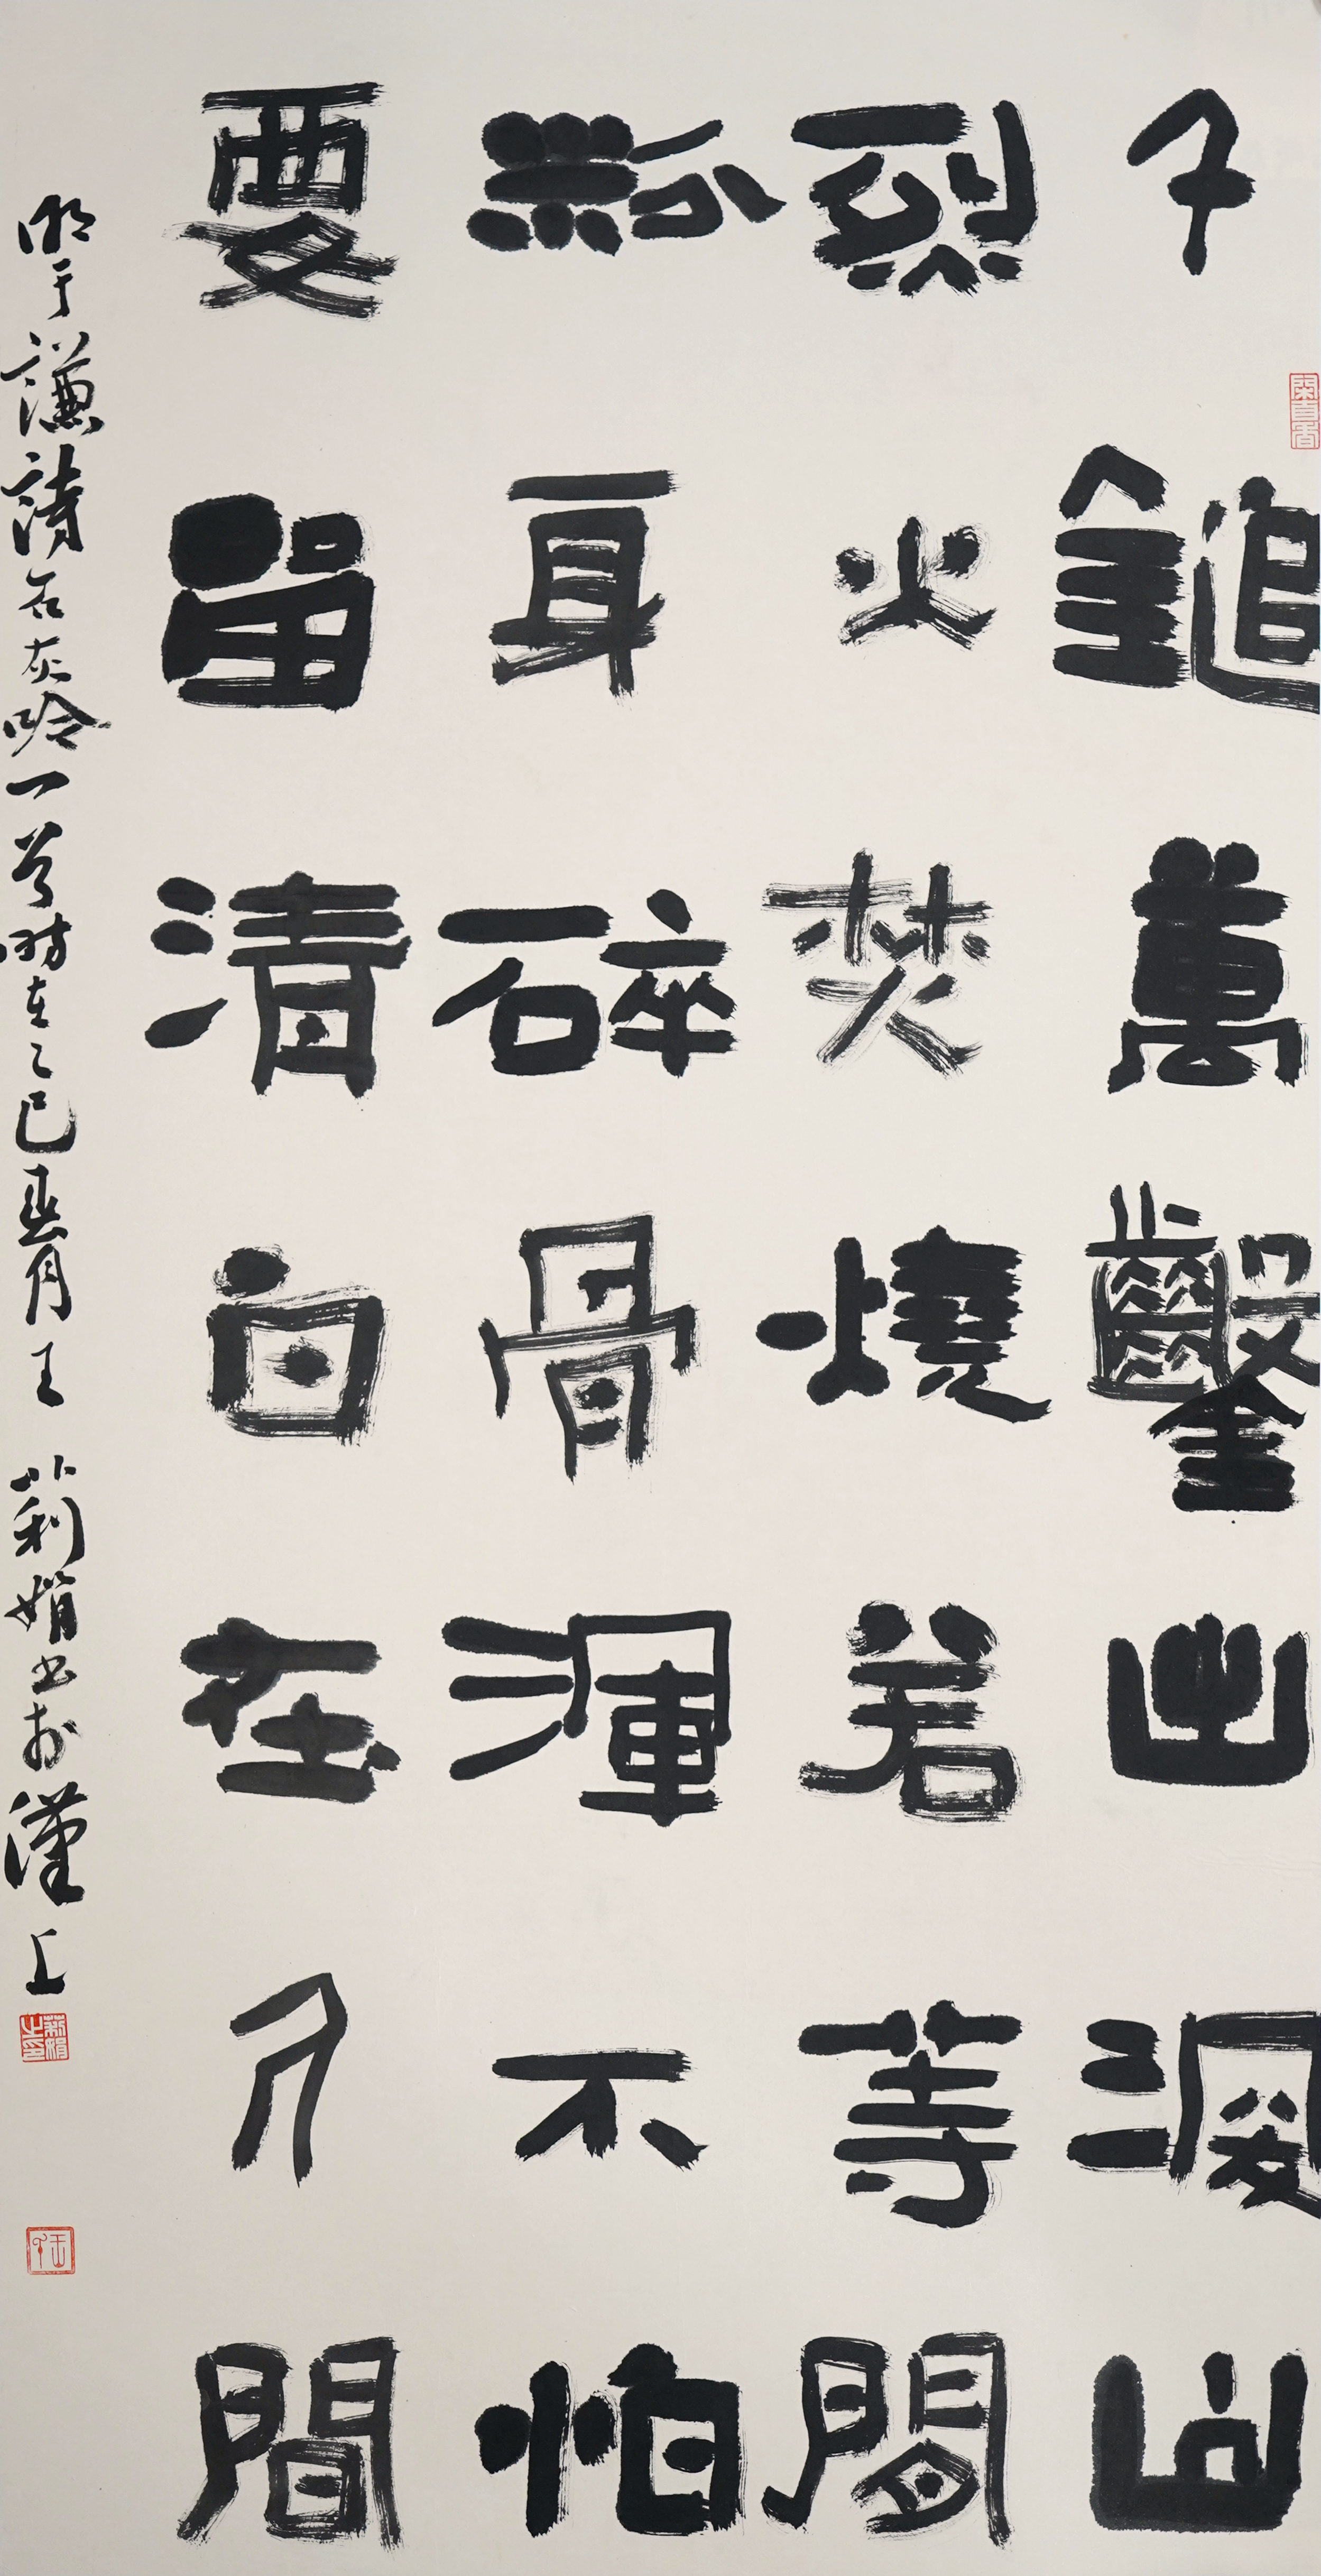 千鎚萬鑿出深山
烈火焚燒若等閒
粉身碎骨渾不怕
要留清白在人間
明于謙詩石灰吟一首時在乙巳春月王莉娟書於漢上
莉娟之印